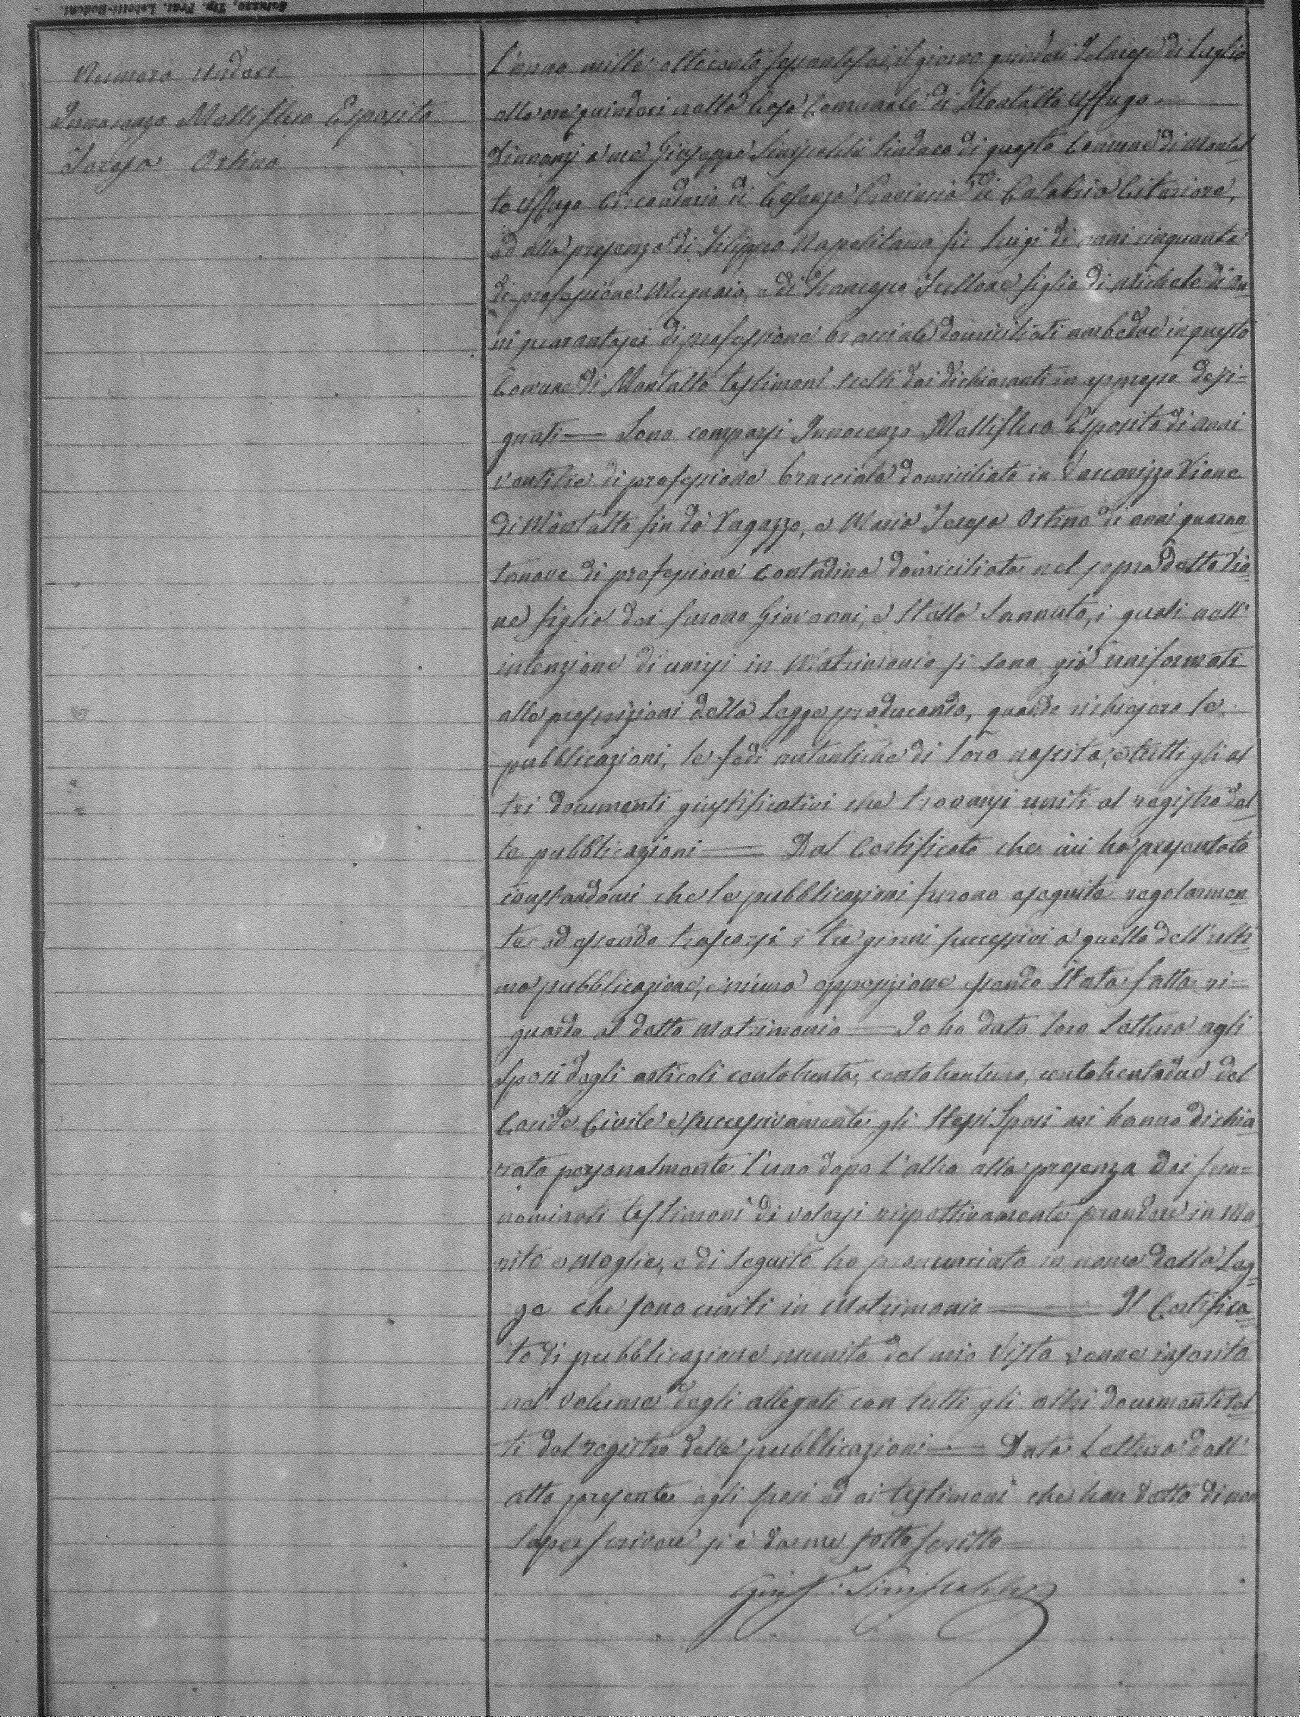 Saluzzo, Tip. Frat. Lobetti-Bodoni
Numero undeci
Innocenzo Mellifluo Esposito
Teresa Ortino
L'anno mille ottocento sessantasei, il giorno quindeci del mese di Luglio
alle ore quindeci nella Casa Comunale di Montalto Uffugo
Dinnanzi a me Giuseppe Siniscalchi Sindaco di questo Comune di Montal
to Uffugo Circondario di Cosenza Provincia di Calabria Citeriore,
ed alla presenza di Filippo Napolitano fu Luigi di anni cinquanta
di professione Mugnaio, e di Francesco figlio di Michele di an
ni quarantasei di professione bracciale domiciliati ambedue in questo
Comune di Montalto testimoni scelti dai dichiaranti in appresso desi=
gnati — Sono comparsi Innocenzo Mellifluo Esposito di anni
ventitre di professione bracciale domiciliato in Vaccarizzo
di Montalto fin da ragazzo, e Maria Teresa Ortino di anni quaran
tanove di professione contadina domiciliata nel sopradetto
figlia dei furono Giovanni, e Stella Iannuto, i quali nell'
intenzione di unirsi in Matrimonio si sono già uniformati
alle prescrizioni della Legge producendo, quando richiesero le
pubblicazioni, le fedi autentiche di loro nascita, e tutti gli al
tri documenti giustificativi che trovansi uniti al registro del
le pubblicazioni — Dal Certificato che mi ha presentato
constandomi che le pubblicazioni furono eseguite regolarmen
te ed essendo trascorsi i tre giorni successivi a quello dell'ulti
ma pubblicazione, e niuna opposizione essendo stata fatta ri=
guardo al detto Matrimonio — Io ho dato loro lettura agli
Sposi degli articoli centotrenta, centotrentuno, centotrentadue del
Codice Civile e successivamente gli stessi Sposi mi hanno dichia
rato personalmente l'uno dopo l'altro alla presenza dei
nominati testimoni di volersi rispettivamente prendere in Ma
rito e Moglie, e di seguito ho pronunciato in nome della Leg
ge che sono uniti in Matrimonio — Il Certifica
to di pubblicazione munito del mio Visto venne inserito
nel volume degli allegati con tutti gli altri documenti tol
ti dal registro delle pubblicazioni — Data Lettura dell'
atto presente agli sposi ed ai testimoni che han detto di non
saper scrivere si è da me sottoscritto
Giuse: Siniscalchi